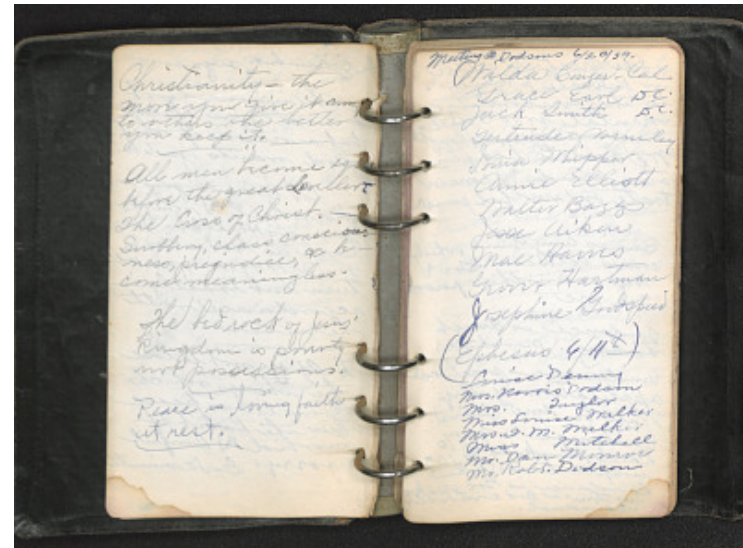 Christianity – the
more you give it away
to others the better
you keep it.
All men become
before the great Leveler
The Cross of Christ. –
Snobbery, class conscious-
ness, prejudice, &
come meaningless.
The bedrock of Jesus'
kingdom is poverty
not possessions.
Peace is loving faith
at rest.
Meeting @ Dodsons 6/20/39.
Walda Cal
Grace Earl D.C.
Jack Smith D.C.
Gertrude
Whipper
Annie Elliott
Walter Bagg
Jesse Aiken
Mae Harris
Hartman
Josephine
(Ephesus 6/11th)
Louise Denny
Mrs. Dodson
Mrs. Taylor
Miss Louise Walker
Mrs. M. Walker
Miss Mitchell
Mr. Dan Monroe
Mr. Robt. Dodson